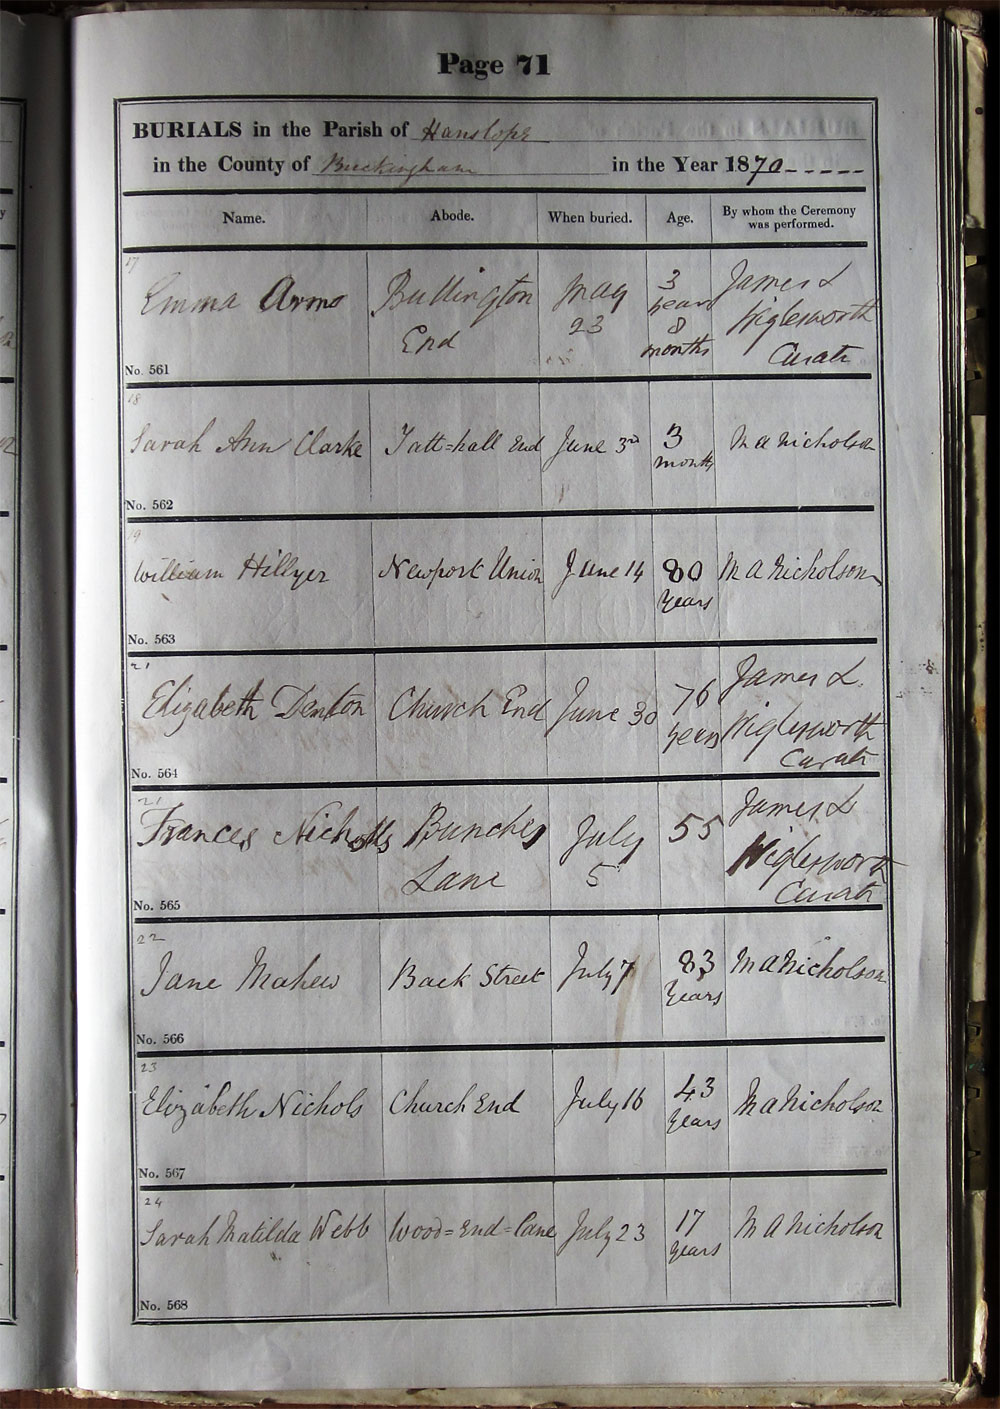 Page 71
BURIALS in the Parish of Hanslope
in the County of Buckingham in the Year 1870
Name. Abode. When buried. Age. By whom the Ceremony was performed.
17
Emma Bullington May 3 James L
End 23 years Wiglesworth
8
months Curate
No. 561
18
Sarah Ann Clarke Tatt=hall End June 3rd 3 M A Nicholson
months
No. 562
19
William Hillyer Newport Union June 14 80 M A Nicholson
years
No. 563
21
Elizabeth Denton Church End June 30 76 James L.
years Wiglesworth
Curate
No. 564
21
Frances Nicholls Bunches July 55 James L
Lane 5 Wiglesworth
Curate
No. 565
22
Jane Mahew Back Street July 7 83 M A Nicholson
years
No. 566
23
Elizabeth Nichols Church End July 16 43 M A Nicholson
years
No. 567
24
Sarah Matilda Webb Wood=End=Lane July 23 17 M A Nicholson
years
No. 568